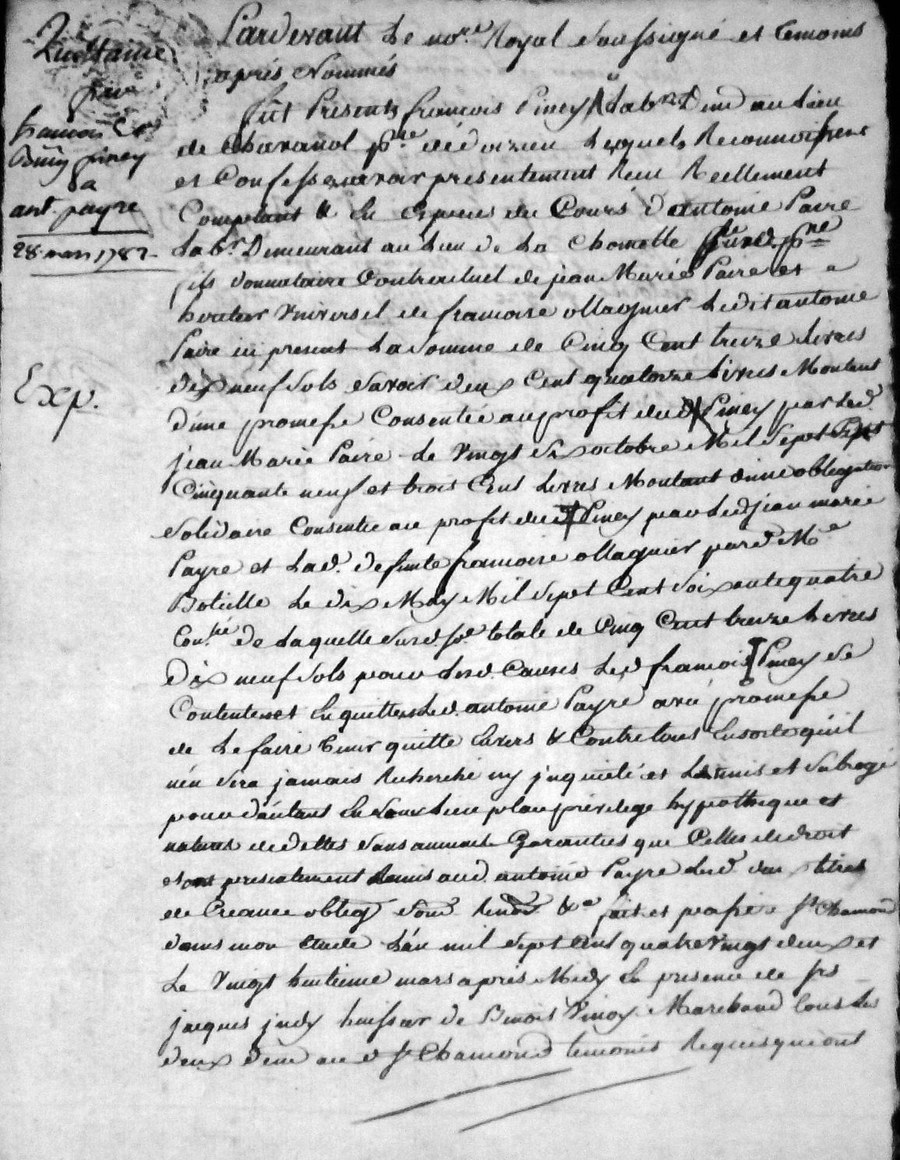 Quittance
françois et
piney
a
ant. payre
28 mars 1782
Exp.
Pardevant Le no.re Royal soussigné et temoins
après Nommés
fût Présents françois Piney Lab.r Dem.t au Lieu
de Chavanol p.sse de doizieu Lesquels Reconnoissent
et Confessent avoir présentement Reçu Reellement
Comptant & En Espèces de Cours d'antoine Paire
Lab.r Demeurant au Lieu de La Chomette
fils donnataire Contractuel de jean Marie Paire et
heritier Universel de françoise ollagnier Ledit antoine
Paire ici présent La somme de Cinq Cent treize Livres
dix neuf sols savoir deux Cent quatorze Livres Montant
d'une promesse Consentie au profit dud. Piney par Led.
jean Marie Paire le Vingt six octobre Mil sept Cent
Cinquante neuf et trois Cent Livres Montant d'une obligation
solidaire Consentie au profit dud. Piney par Led. jean marie
Payre et Lad. defunte françoise ollagnier pard. M.e
Le dix May Mil sept Cent soixante quatre
de Laquelle susd. s.e totale de Cinq Cent treize Livres
Dix neuf sols pour Lesd. Causes Led. françois Piney se
Contentent En quittent Led. antoine Payre avec promesse
de Le faire tenir quitte Envers & Contre tous En sorte qu'il
n'en sera jamais Recherché ny inquieté et L'a mis et subrogé
pour d'autant En son Lieu place privilege hypothèque et
natures de dettes sans aucune Garanties que Celles de droit
et ont présentement Remis aud. antoine Payre Lesd. deux titres
de Creance oblig. soum. Renon. &.a fait et passé à S.t Chamond
dans mon Etude L'an mil sept Cent quatre Vingt deux et
Le Vingt huitieme mars après Midy En présence de s.rs
jacques judy huissier de Benoit Vinoy Marchand tous les
deux dem.t aud. S.t Chamond temoins Requis qui ont